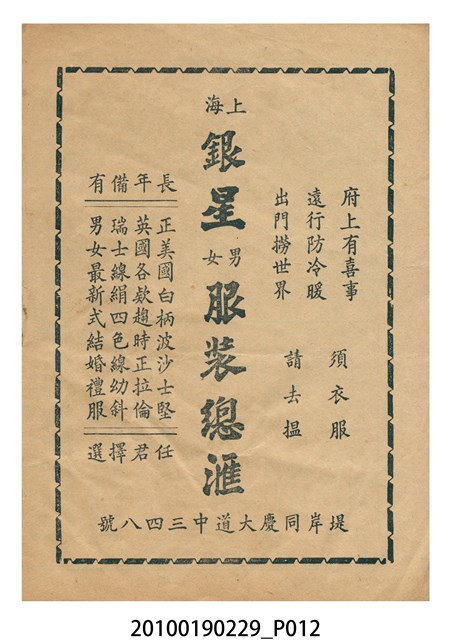 府上有喜事
遠行防冷暖
出門撈世界
須衣服
請去搵
上海
銀星
男女
服装總滙
長年備有
正美國白柄波沙士堅
英國各款趨時正拉倫
瑞士線絹四色線幼斜
男女最新式結婚禮服
任君擇選
堤岸同慶大道中三四八號
20100190229_P012